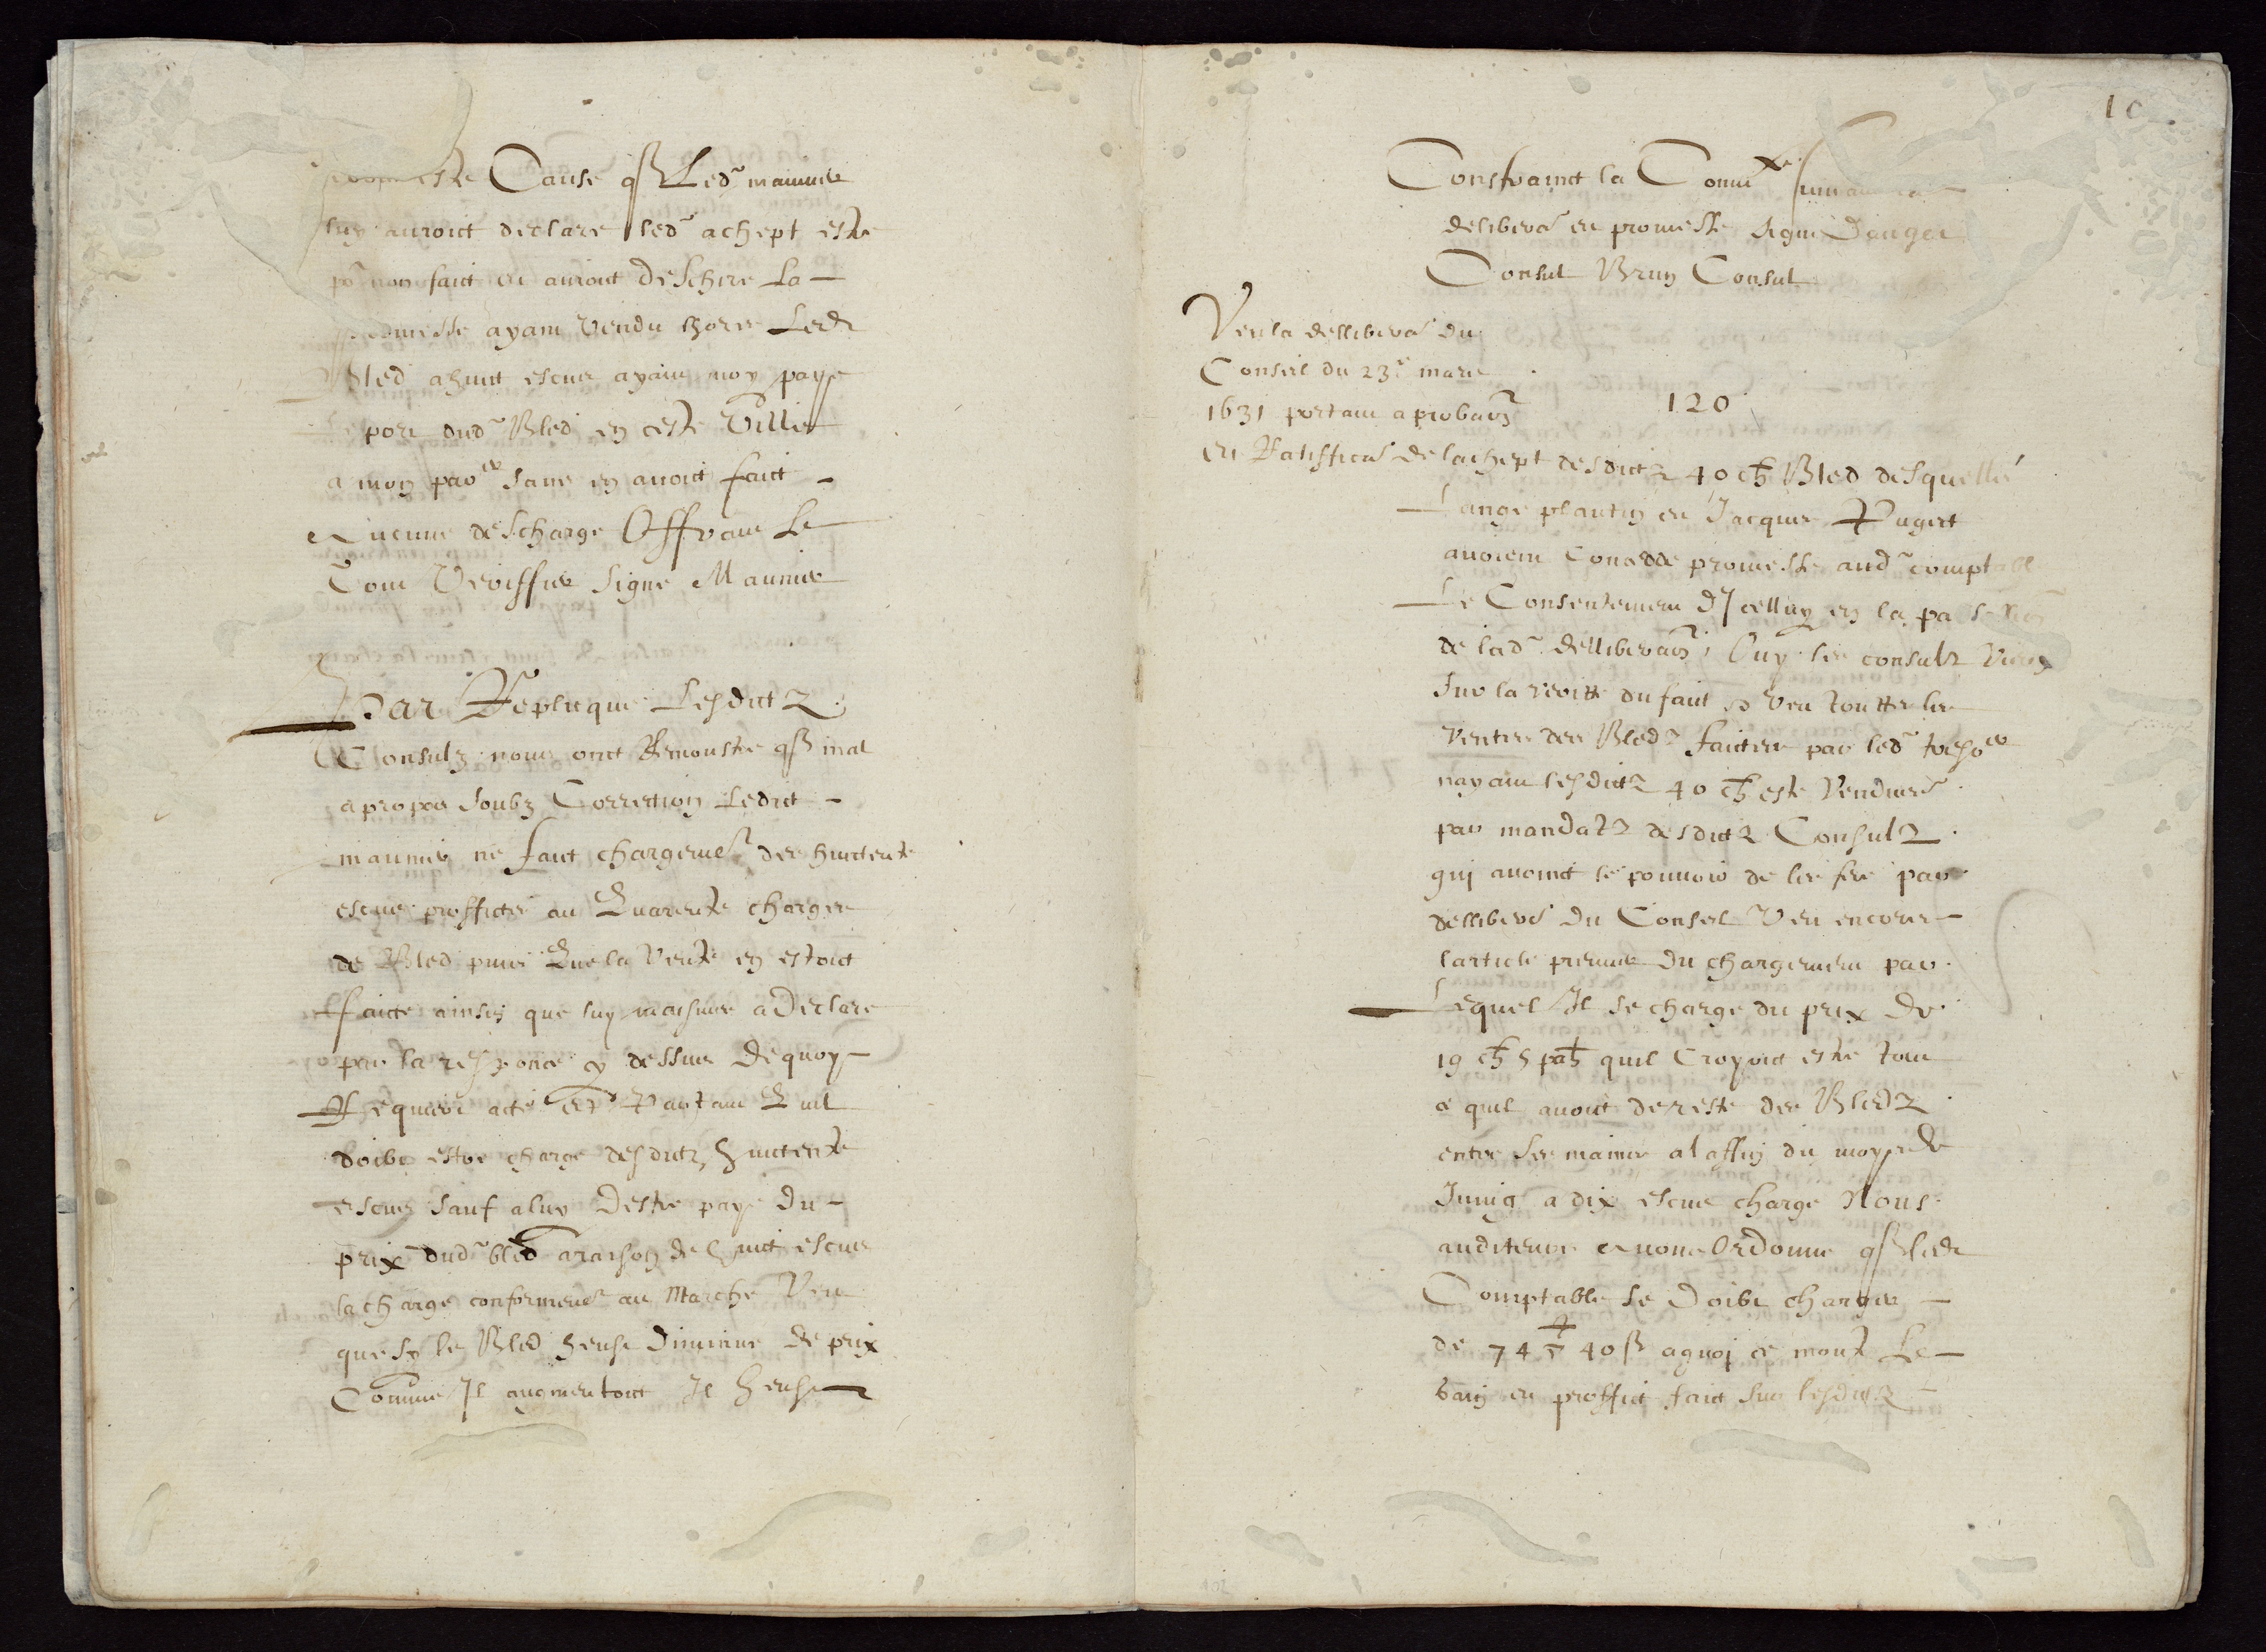 promesse Cause q̃ Led̃ maunier
luy auroict declare led̃ achept estre
po˜ non faict et auroict deschire La
promesse ayant vendu hores Ledt
Bled a huict escus ayant moy paye
Le port dud̃ Bled en ceste Ville
a mon pao.er sans en avoict faict
Aucune descharge Offrant Le
Tout Veriffier Signe Maunier
Par Replicque Lesdictz
Consulz nous ont Remoustre q̃ mal
a propos soubz Correction Ledict
maunier ne faict chargemet des huictente
escus proffictes au Quarente charges
de Bled puis Que la Vente en estoict
ffaicte ainsin que luy maisme a Declare
par la responce cy dessus de quoy
Requiere acte et Partant Quil
doibe estre charge desdictz huictente
escus sauf a luy Destre paye du
prix dud̃ bled a raison de huict escus
la charge conformemet au Marche Veu
que sy le Bled heust Diminue de prix
Comme Il augmentoict Il heust
10
Constrainct la Commte suivant la
delibera˜ et promesse signe Dauger
Consul Brun Consul
Veu la dellibera˜ du
Conseil du 23e mars
1631 portant aprobaon̄
et Ratiffica˜ de lachept desdictz 40 ch Bled desquelles
120
Lange plantin et Jacques Puget
avoient Concedde promesse aud̃ comptable
Le Consentement dIcelluy en la passation
de lad̃ delliberaon̄ Ouy les consulz vieux
sur la veritte du faict et veu touttes les
ventes des Bledz faictes par led̃ treso.er
nayant lesdictz 40 ch este vendues
par mandatz desdictz Consulz
qui avoinct le pouvoir de les fere par
dellibera˜ du Conseil Veu encores
larticle premier du chargement par
Lequel Il se charge du prix de
19 ch 5 pah quil Croyoict estre tout
ce quil avoict de reste des Bledz
entre ses mains a laffin du moys de
Juing a dix escus charge Nous
auditeurs avons Ordonne q̃ ledt
Comptable se Doibe charger
de 74 40 ß a quoy ce monte Le
bain et proffict faict sur lesdictz
102